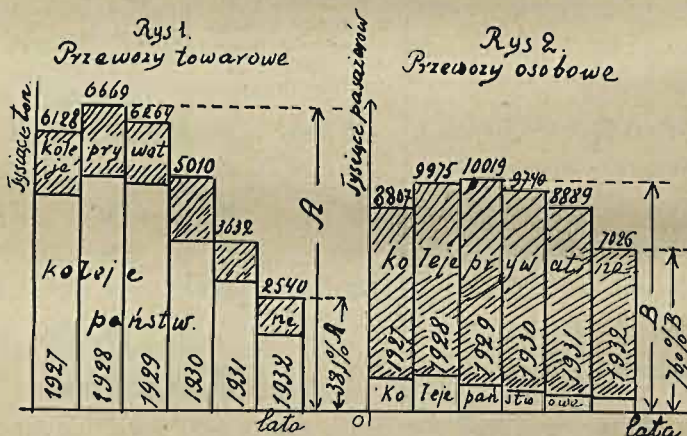 Rys 1.
Przewozy towarowe
Tysiące ton.
6128
6669
6264
5010
3632
2540
koleje pry wat ne
koleje
państw.
A
38,1% A
1927 1928 1929 1930 1931 1932
lata
Rys 2.
Przewozy osobowe
Tysiące pasażerów
8807
9975
10019
9740
8889
7026
ko leje pry w at ne
B
76% B
1927 1928 1929 1930 1931 1932
ko leje pań stw owe
0
lata